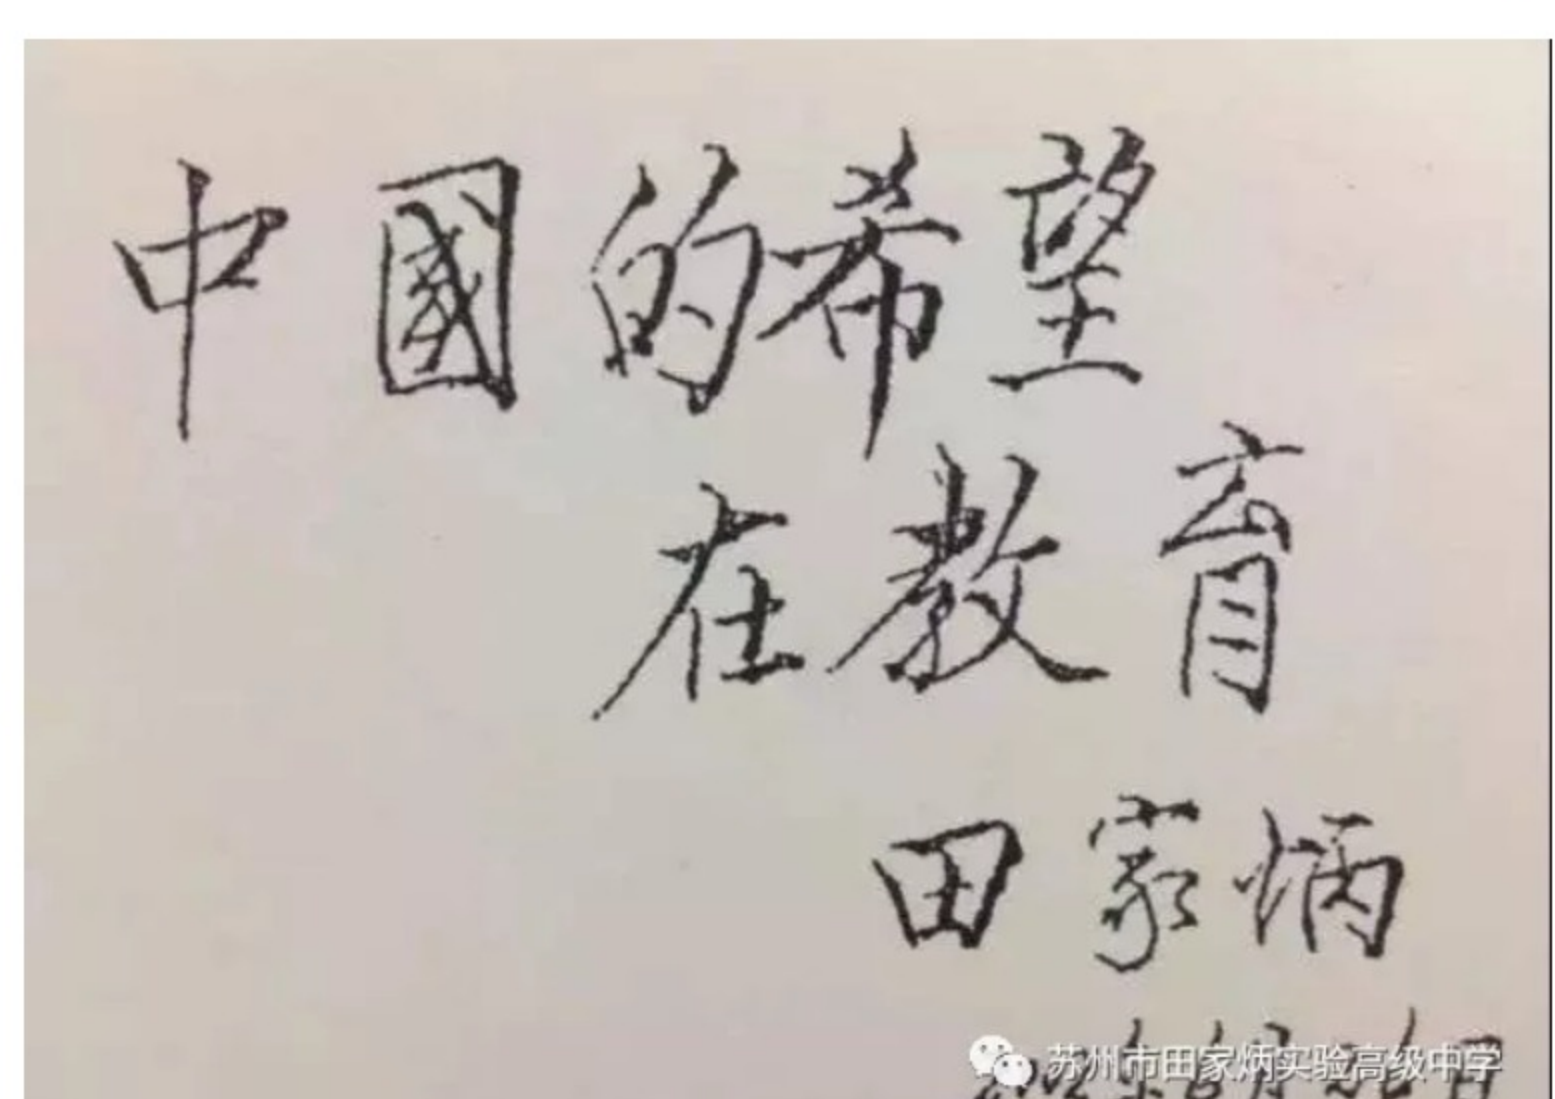 中國的希望
在教育
田家炳
苏州市田家炳实验高级中学